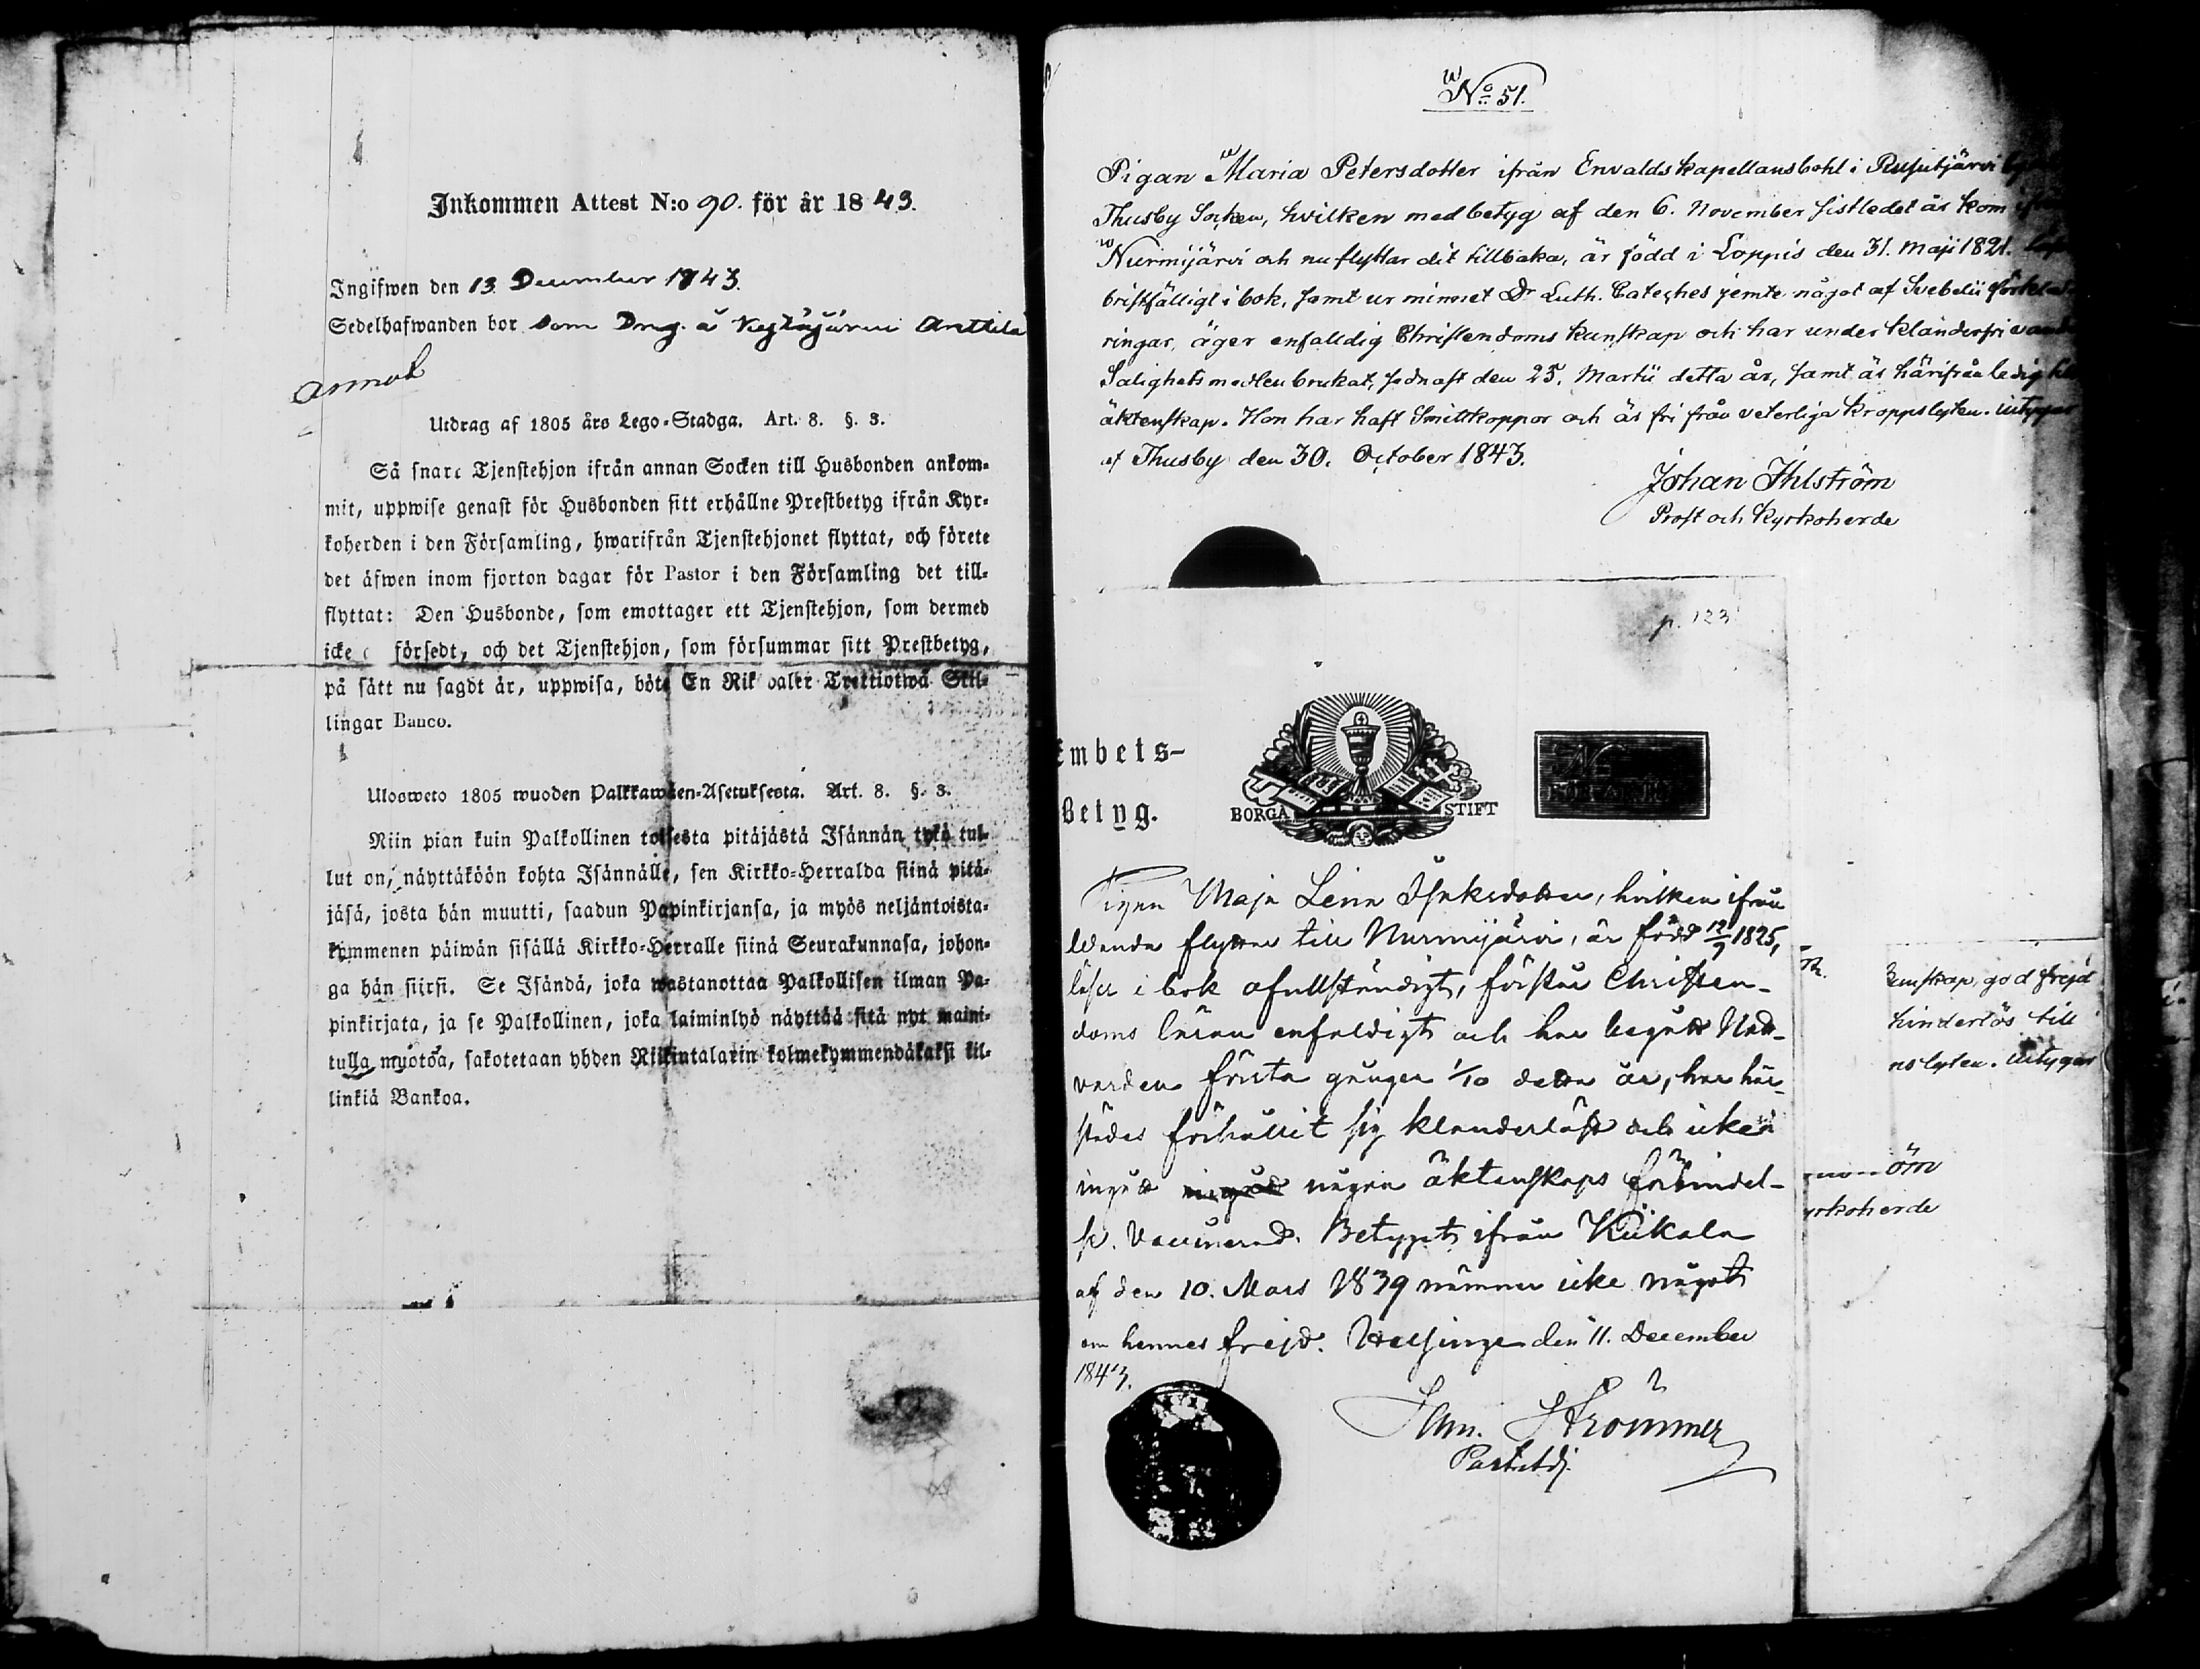 Inkommen Attest N:o 90. för år 1843.
Ingifwen den 13 December 1843.
Sedelhafwanden bor som Drng. å
annot
Utdrag af 1805 års Lego-Stadga. Art. 8. §. 3.
Så snart Tjenstehjon ifrån annan Socken till Husbonden ankom-
mit, uppwise genast för Husbonden sitt erhållne Prestbetyg ifrån Kyr-
koherden i den Församling, hwarifrån Tjenstehjonet flyttat, och förete
det äfwen inom fjorton dagar för Pastor i den Församling det till-
flyttat: Den Husbonde, som emottager ett Tjenstehjon, som dermed
icke försedt, och det Tjenstehjon, som försummar sitt Prestbetyg,
på sätt nu sagdt är, uppwisa, böte En Rik daler Trettiotwå Skil-
lingar Banco.
Ulosweto 1805 wuoden Palkkawäen-Asetuksesta. Art. 8. §. 3.
Niin pian kuin Palkollinen toisesta pitäjästä Isännän tykö tul-
lut on, näyttäköön kohta Isännälle, sen Kirkko-Herralda siinä pitä-
jäsä, josta hän muutti, saadun Papinkirjansa, ja myös neljäntoista-
kymmenen päiwän sisällä Kirkko-Herralle siinä Seurakunnasa, johon-
ga hän siirsi. Se Isändä, joka wastanottaa Palkollisen ilman Pa-
pinkirjata, ja se Palkollinen, joka laiminlyö näyttää sitä nyt maini-
tulla muotoa, sakotetaan yhden Riikintalarin kolmekymmendäkaksi kil-
linkiä Bankoa.
No 51.
Pigan Maria Petersdotter ifrån Envalds Kapellansbohl i Rusutjärvi
Thusby Socken, hvilken med betyg af den 6. November sistledet år kom ifrån
Nurmijärvi och nu flyttar dit tillbaka, är född i Loppis den 31. Maji 1821.
bristfälligt i bok, samt ur minnet Dr Luth. Cateches jemte något af Svebelii förkla-
ringar, äger enfalldig Christendoms kunskap och har under klanderfri
Salighetsmedlen brukat, sednast den 25. Martii detta år, samt är härifrån ledig
äktenskap. Hon har haft Smittkoppor och är fri från veterliga kroppslyten. intygar
af Thusby den 30. October 1843.
Johan Ihlström
Prost och Kyrkoherde
p. 123
Embets-
Betyg.
BORGÅ STIFT
Pigan Maja Lena Isaksdotter, hvilken ifrån
flyttar till Nurmijärvi, är född 12/9 1825,
läser i bok ofullständigt, förstår Christen-
doms läran enfaldigt och har begått Natt-
varden första gången 1/10 detta år, har här-
städes förhållit sig klanderlöst och icke
ingått någon äktenskaps förbindel-
se. Vaccinerad. Betyget ifrån Kiikala
af den 10. Mars 1839 nämner icke något
om hennes frejd. Helsinge den 11. December
1843.
Sam. Strömmer
kunskap, god frejd
hinderlös till
nslyten. intygar
öm
yrkoherde